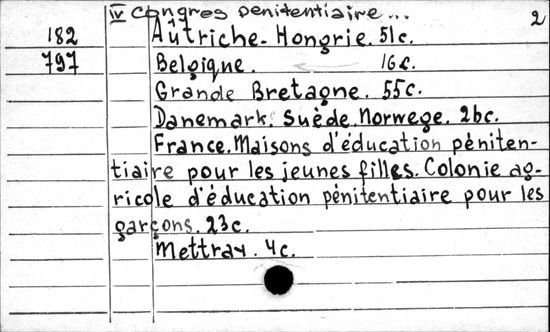 IV Congres penitentiaire... 2
182 Aûtriche-Hongrie. 51c.
797 Belgique. 16c.
Grande Bretagne. 55c.
Danemark. Suède. Norwege. 26c.
France. Maisons d'éducation péniten-
tiaire pour les jeunes filles. Colonie ag-
ricole d'éducation pénitentiaire pour les
garçons. 23c.
Mettray. 4c.